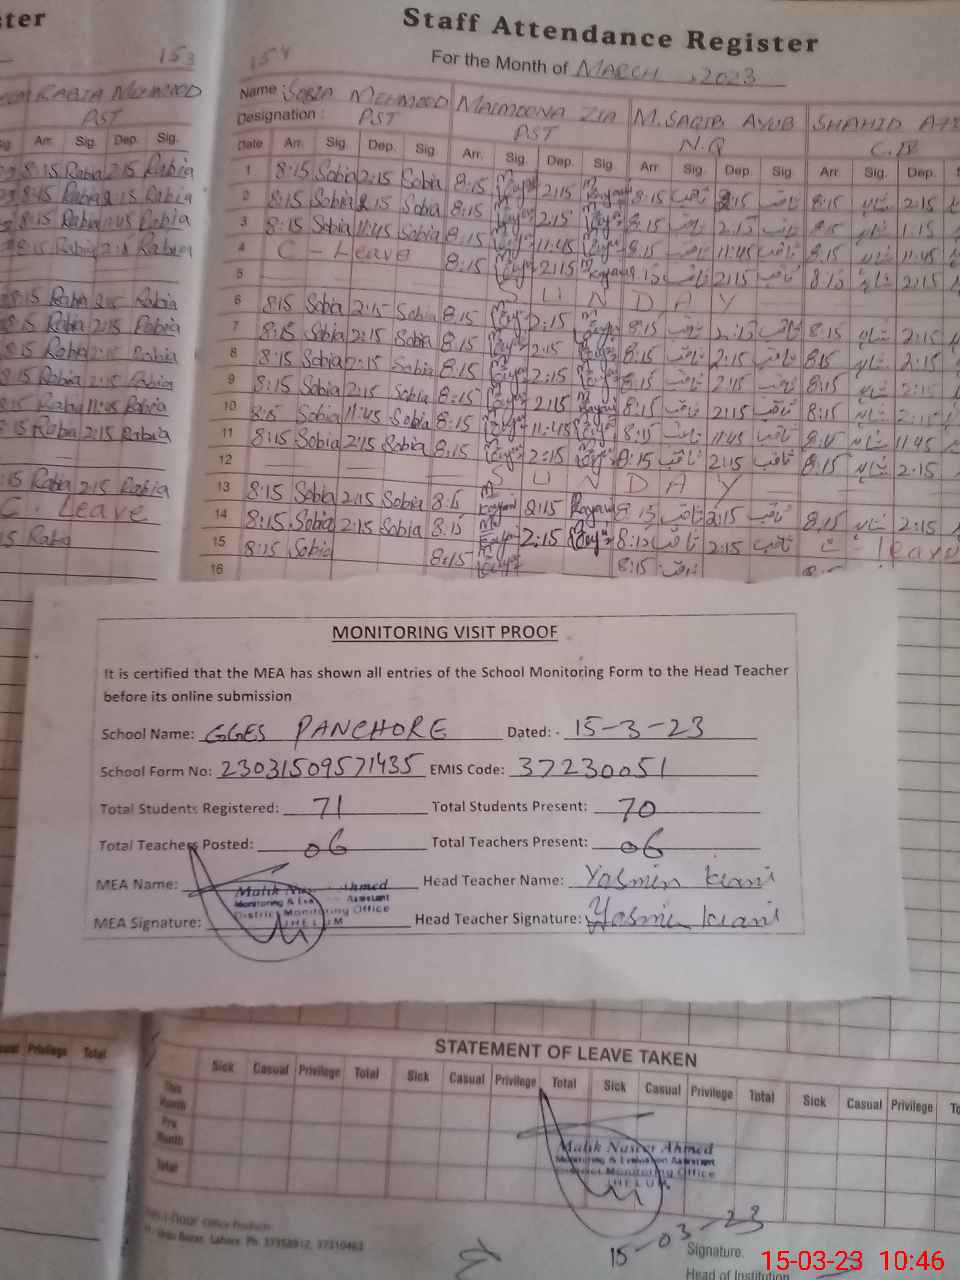 ster
Staff Attendance Register
For the Month of MARCH , 2023
153
154
RABIA MEHMOOD
PST
Name SOBIA MEHMOOD MAIMOONA ZIA M. SAQIB AYUB SHAHID
Designation : PST PST N.Q
Arr. Sig. Dep. Sig.
Date Arr. Sig. Dep. Sig. Arr. Sig. Dep. Sig. Arr. Sig. Dep. Sig. Arr. Sig. Dep.
8:15 Rabia 2:15 Rabia
1 8:15 Sobia 2:15 Sobia 8:15 2:15 8:15 ثاقب 2:15 ثاقب 8:15 2:15
8:15 Rabia 2:15 Rabia
2 8:15 Sobia 2:15 Sobia 8:15 2:15 8:15 ثاقب 2:15 ثاقب 8:15 1:15
8:15 Rabia 11:45 Rabia
3 8:15 Sobia 11:45 Sobia 8:15 11:45 8:15 ثاقب 11:45 ثاقب 8:15 11:45
8:15 Rabia 2:15 Rabia
4 C - Leave 8:15 2:15 8:15 ثاقب 2:15 ثاقب 8:15 2:15
5 SUNDAY
8:15 Rabia 2:15 Rabia
6 8:15 Sobia 2:15 Sobia 8:15 2:15 8:15 ثاقب 2:15 ثاقب 8:15 2:15
8:15 Rabia 2:15 Rabia
7 8:15 Sobia 2:15 Sobia 8:15 2:15 8:15 ثاقب 2:15 ثاقب 8:15 2:15
8:15 Rabia 2:15 Rabia
8 8:15 Sobia 2:15 Sobia 8:15 2:15 8:15 ثاقب 2:15 ثاقب 8:15 2:15
8:15 Rabia 2:15 Rabia
9 8:15 Sobia 2:15 Sobia 8:15 2:15 8:15 ثاقب 2:15 ثاقب 8:15 2:15
8:15 Rabia 11:45 Rabia
10 8:15 Sobia 11:45 Sobia 8:15 11:45 8:15 ثاقب 11:45 ثاقب 8:15 11:45
8:15 Rabia 2:15 Rabia
11 8:15 Sobia 2:15 Sobia 8:15 2:15 8:15 ثاقب 2:15 ثاقب 8:15 2:15
12 SUNDAY
8:15 Rabia 2:15 Rabia
13 8:15 Sobia 2:15 Sobia 8:15 2:15 8:15 ثاقب 2:15 ثاقب 8:15 2:15
C - Leave
14 8:15 Sobia 2:15 Sobia 8:15 2:15 8:15 ثاقب 2:15 ثاقب C - leave
15 Rabia
15 8:15 Sobia 8:15 8:15 ثاقب
16
MONITORING VISIT PROOF
It is certified that the MEA has shown all entries of the School Monitoring Form to the Head Teacher
before its online submission
School Name: GGES PANCHORE Dated: - 15-3-23
School Form No: 23031509571435 EMIS Code: 37230051
Total Students Registered: 71 Total Students Present: 70
Total Teachers Posted: 06 Total Teachers Present: 06
MEA Name: Head Teacher Name: Yasmin Kiani
Malik Ahmed
Monitoring & Assistant
District Monitoring Office
JHELUM
MEA Signature: Head Teacher Signature: Yasmin Kiani
STATEMENT OF LEAVE TAKEN
Privilege Total
Sick Casual Privilege Total Sick Casual Privilege Total Sick Casual Privilege Total Sick Casual Privilege
This Month
Pre Month
Total
Malik Naseer Ahmed
Monitoring & Evaluation Assistant
District Monitoring Office
JHELUM
15-03-23
Office Products
Urdu Bazar, Lahore. Ph: 37358912, 37310463
Signature.
Head of Institution
15-03-23 10:46